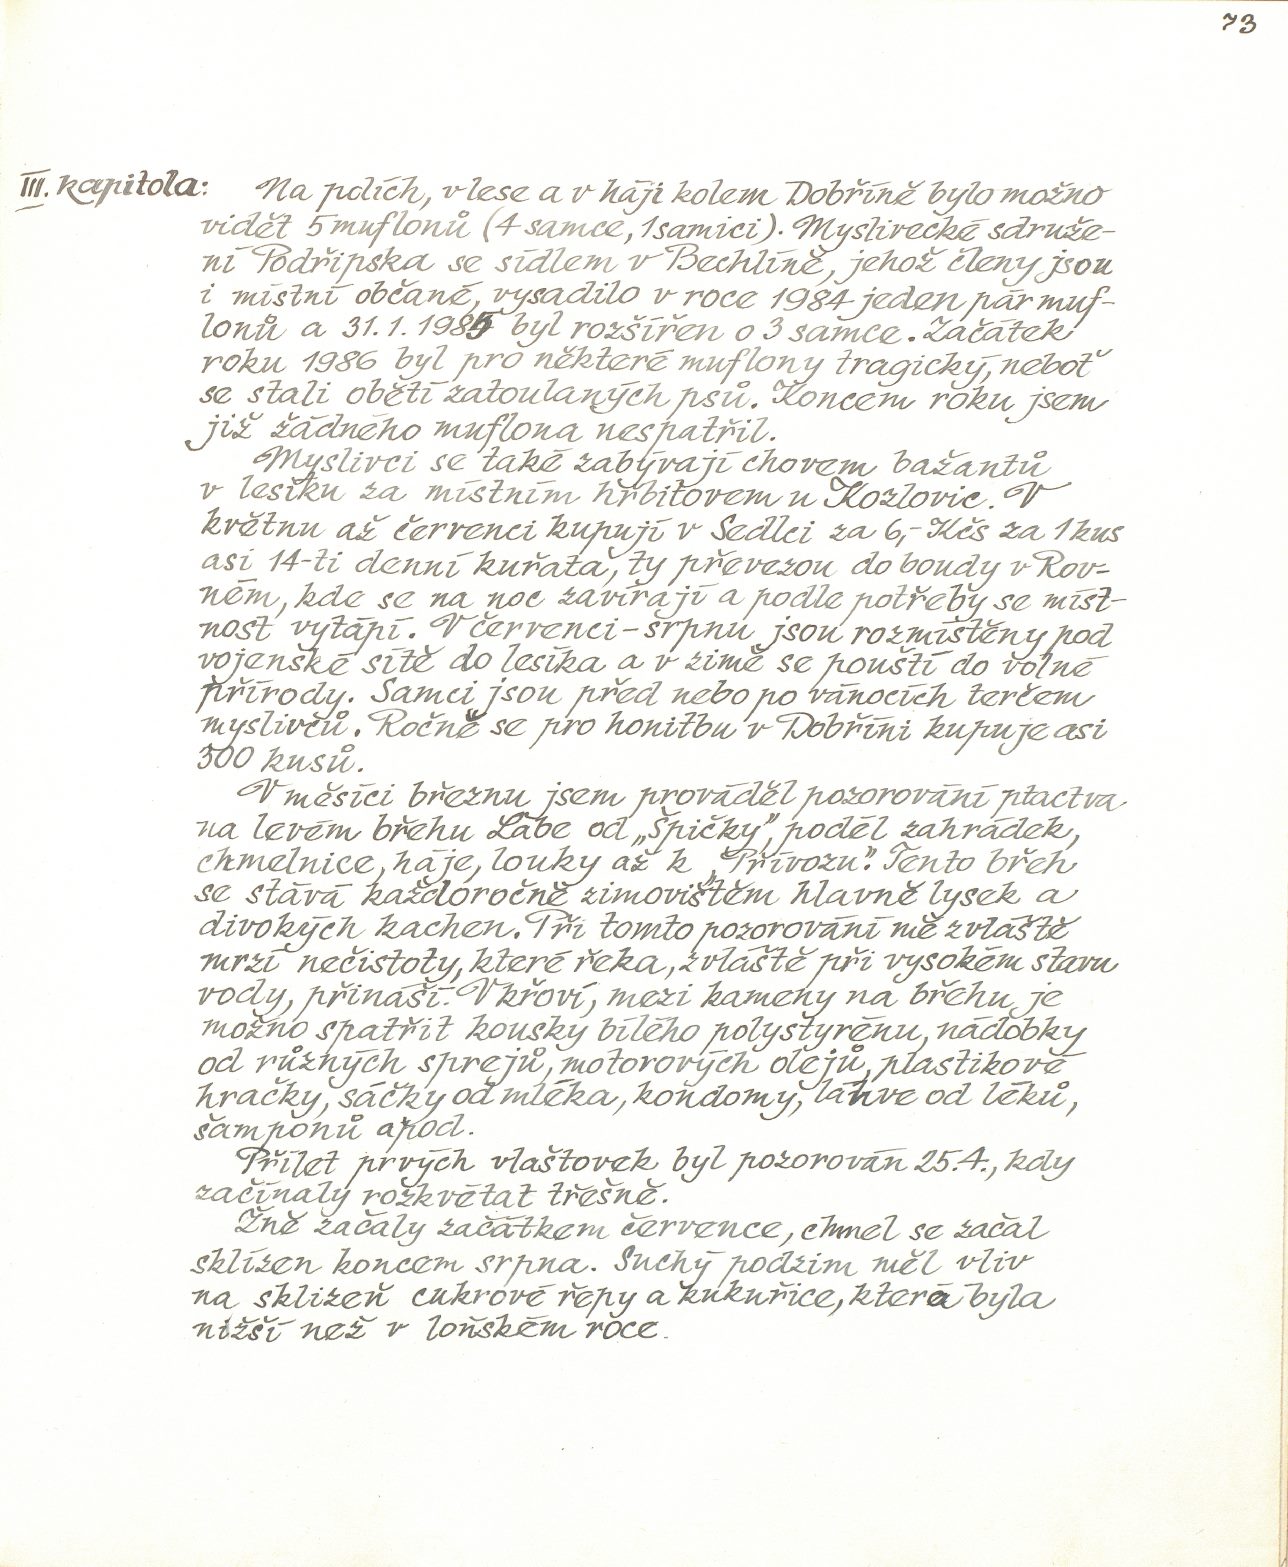 73
III. kapitola: Na polích, v lese a v háji kolem Dobříně bylo možno
vidět 5 muflonů (4 samce, 1 samici). Myslivecké sdruže-
ní Podřipska se sídlem v Bechlíně, jehož členy jsou
i místní občané, vysadilo v roce 1984 jeden pár muf-
lonů a 31. 1. 1985 byl rozšířen o 3 samce. Začátek
roku 1986 byl pro některé muflony tragický, neboť
se stali obětí zatoulaných psů. Koncem roku jsem
již žádného muflona nespatřil.
Myslivci se také zabývají chovem bažantů
v lesíku za místním hřbitovem u Kozlovic. V
květnu až červenci kupují v Sedlci za 6,- Kčs za 1 kus
asi 14-ti denní kuřata, ty převezou do boudy v Rov-
ném, kde se na noc zavírají a podle potřeby se míst-
nost vytápí. V červenci - srpnu jsou rozmístěny pod
vojenské sítě do lesíka a v zimě se pouští do volné
přírody. Samci jsou před nebo po vánocích terčem
myslivců. Ročně se pro honitbu v Dobříni kupuje asi
300 kusů.
V měsíci březnu jsem prováděl pozorování ptactva
na levém břehu Labe od „Špičky", podél zahrádek,
chmelnice, háje, louky až k „Přívozu". Tento břeh
se stává každoročně zimovištěm hlavně lysek a
divokých kachen. Při tomto pozorování mě zvláště
mrzí nečistoty, které řeka, zvláště při vysokém stavu
vody, přináší. V křoví, mezi kameny na břehu je
možno spatřit kousky bílého polystyrénu, nádobky
od různých sprejů, motorových olejů, plastikové
hračky, sáčky od mléka, kondomy, láhve od léků,
šamponů apod.
Přílet prvých vlaštovek byl pozorován 25. 4., kdy
začínaly rozkvétat třešně.
Žně začaly začátkem července, chmel se začal
sklízen koncem srpna. Suchý podzim měl vliv
na sklizeň cukrové řepy a kukuřice, která byla
nižší než v loňském roce.